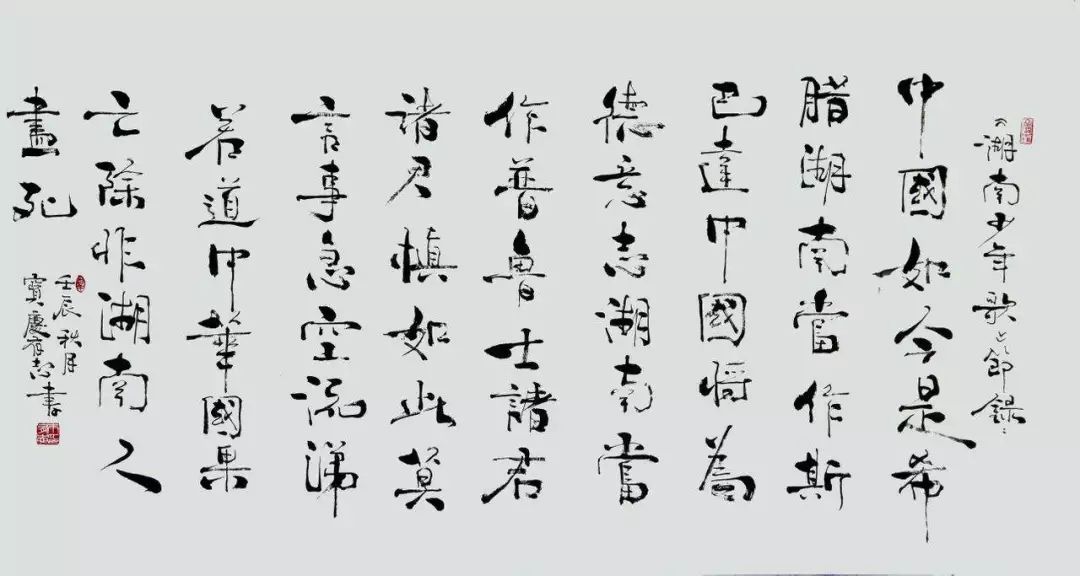 《湖南少年歌》節錄
中國如今是希
腊湖南當作斯
巴達中國將為
德意志湖南當
作普魯士諸君
諸君慎如此莫
言事急空流涕
若道中華國果
亡除非湖南人
盡死
壬辰秋月
寶慶志書